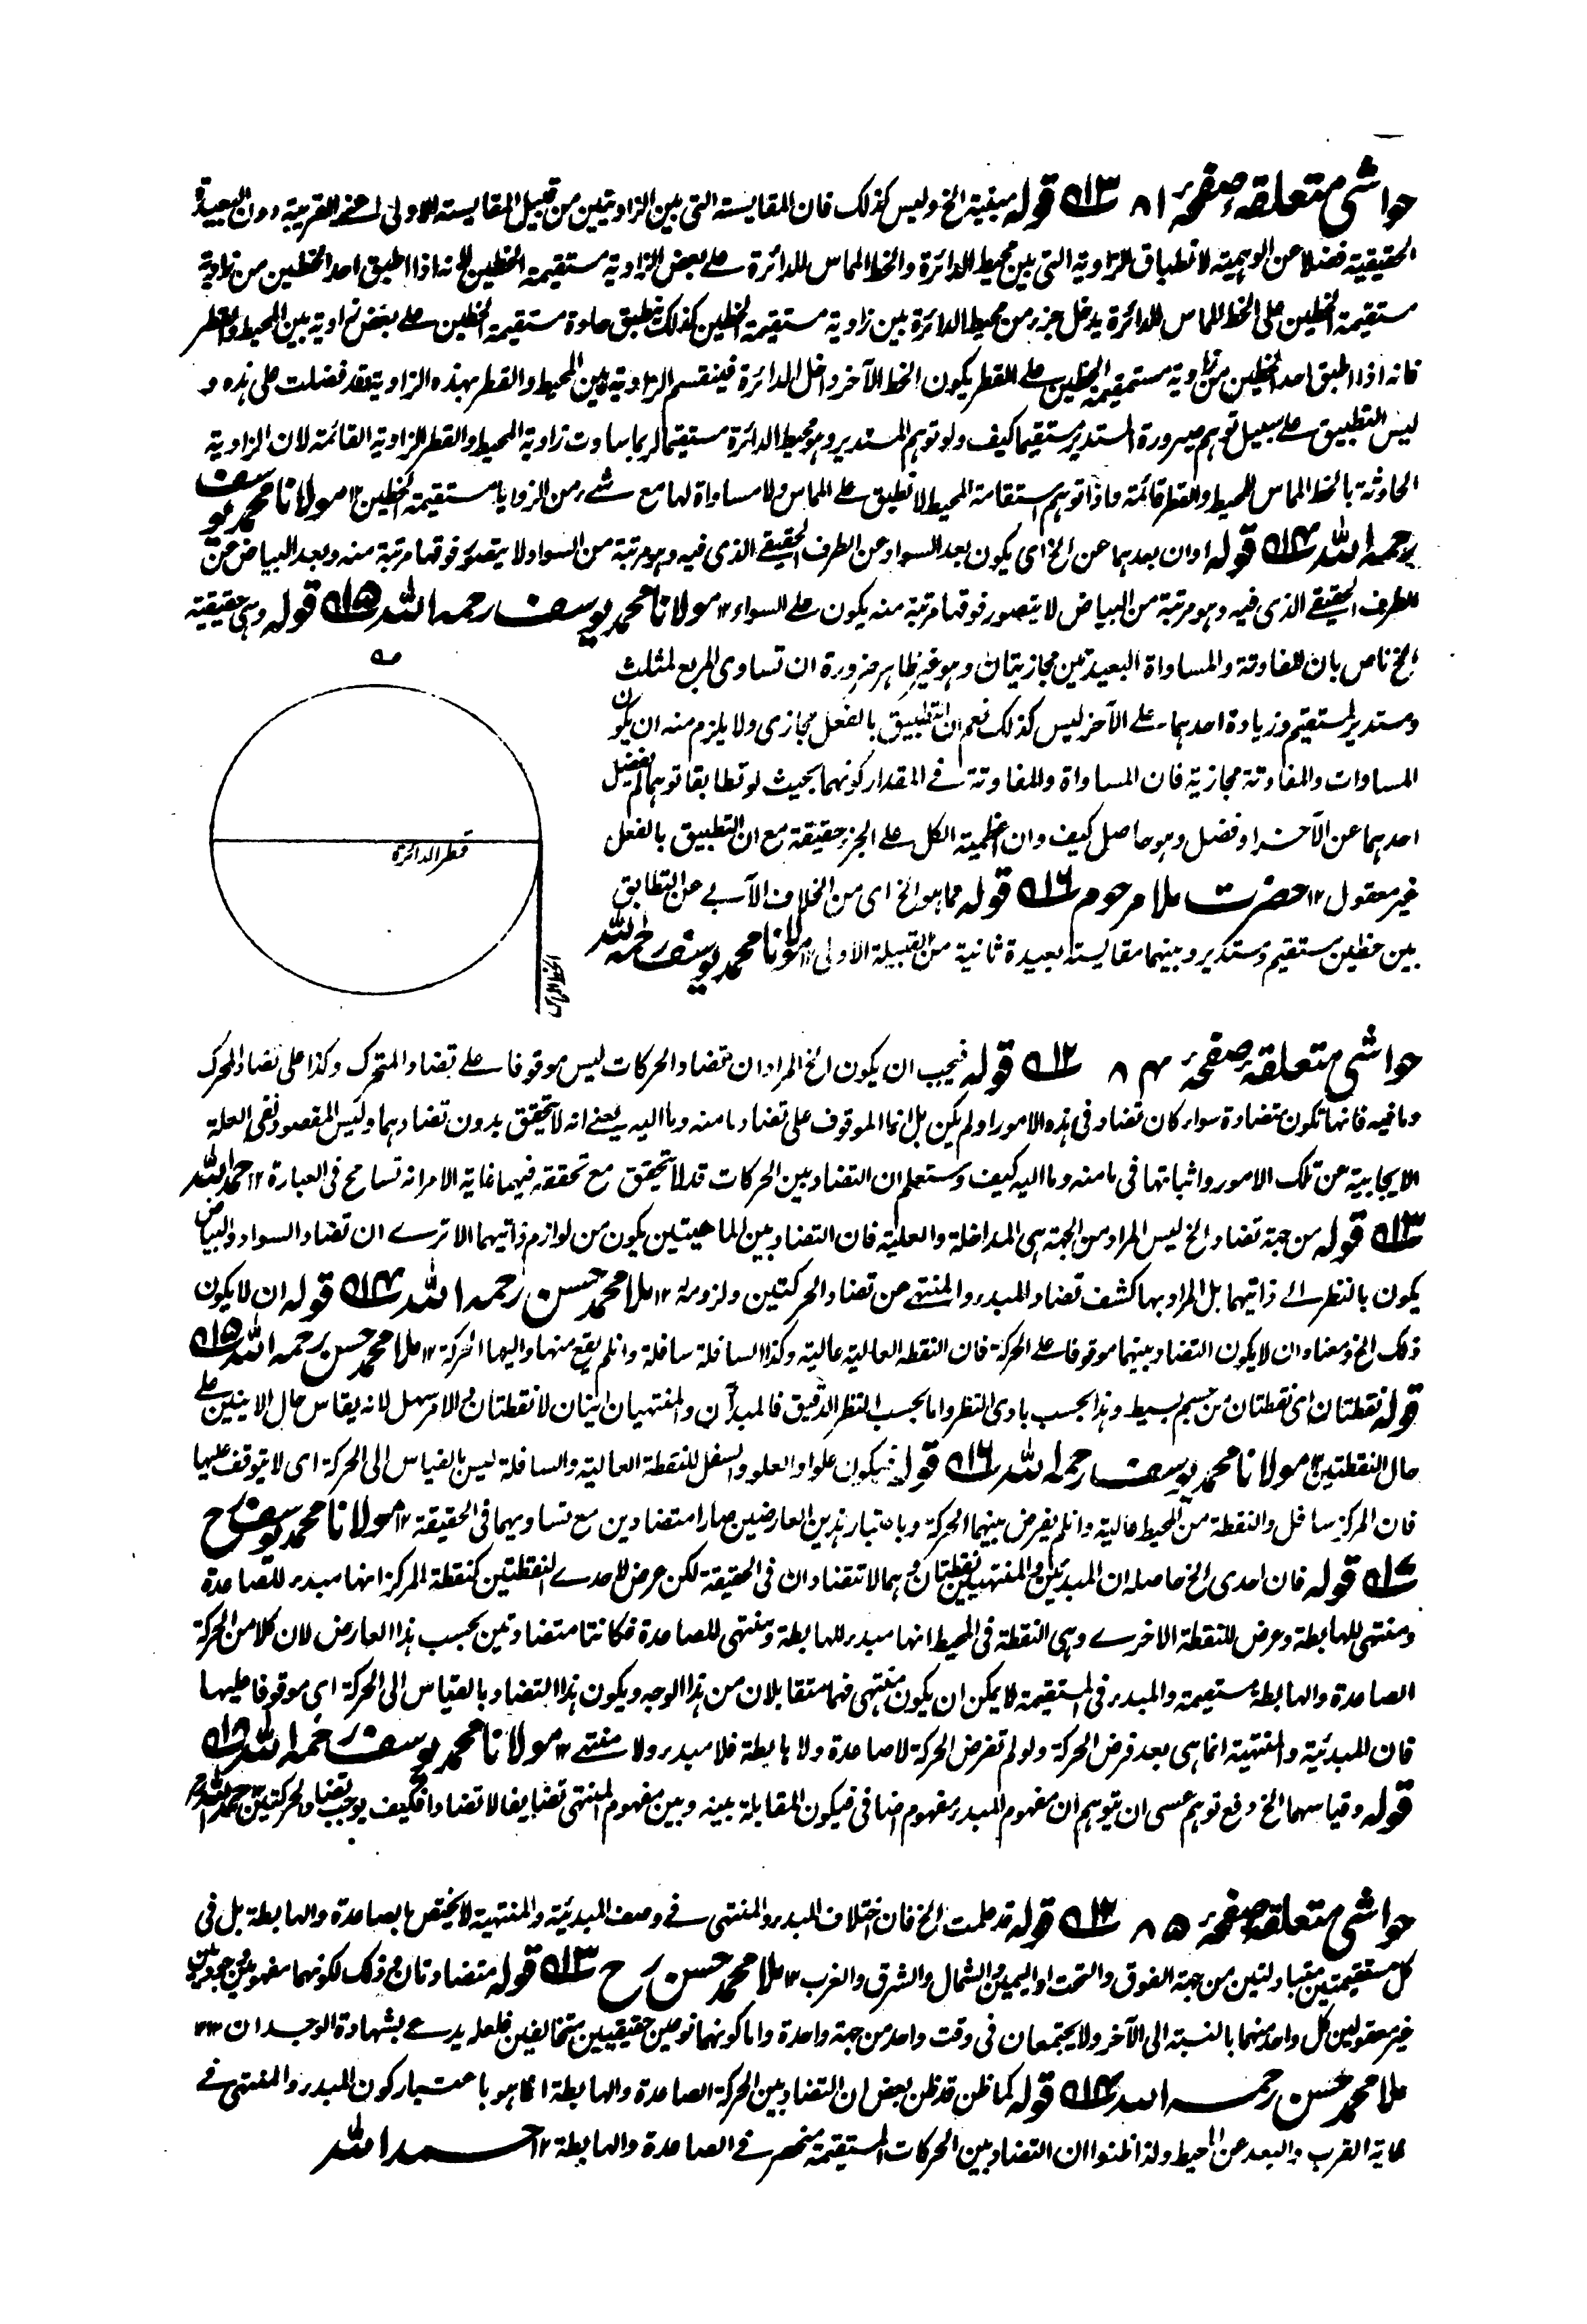 حواشی متعلقہ صفحہ ۸۱ ۱۳ قوله مبنية الخ وليس كذلك فان المقايسة التى بين الزاويتين من قبيل المقايسة الاولى اعنى القريبة دون البعيدة
الحقيقية فضلا عن الوہمية لانطباق الزاوية التى بين محيط الدائرة والخط المماس للدائرة علے بعض الزاوية مستقيمة الخطين لانہ اذا طبق احد الخطين من زاوية
مستقيمة الخطين على الخط المماس للدائرة يدخل جزء من محيط الدائرة بين زاوية مستقيمة الخطين كذلك تطبيق حادة مستقيمة الخطين علے بعض زاوية بين المحيط والقطر
فانه اذا طبق احد الخطين من زاوية مستقيمة الخطين علے القطر يكون الخط الآخر داخل الدائرة فينقسم الزاوية بين المحيط والقطر بهذه الزاوية فقد فضلت على ہذہ و
ليس التطبيق علے سبيل توہم صيرورة المستدير مستقيما كيف ولو توہم المستدير وہو محيط الدائرة مستقيما لربما ساوت زاوية المحيط والقطر الزاوية القائمة لان الزاوية
الحادثة بالخط المماس للمحيط والقطر قائمة واذا توہم استقامة المحيط لانطبق علے المماس ولا مساواة لہا مع شے من الزوايا مستقيمة الخطين ۱۲ مولانا محمد يوسف
رحمہ اللہ ۱۴ قوله او ان بعدہما عن الخ اى يكون بعد السواد عن الطرف الحقيقے الذى فيہ وہو مرتبة من السواد لا يتصور فوقہا مرتبة منہ وبعد البياض عن
الطرف الحقيقے الذى فيہ وہو مرتبة من البياض لا يتصور فوقہا مرتبة منہ يكون علے السواء ۱۲ مولانا محمد يوسف رحمہ اللہ ۱۵ قوله وہى حقيقية
الخ ناص بان المفاوتة والمساواة البعيدتين مجازيتان وہو غير ظاہر ضرورة ان تساوى المربع لمثلث
ومستدير لمستقيم وزيادة احدہما علے الآخر ليس كذلك نعم ان التطبيق بالفعل مجازى ولا يلزم منہ ان يكون
المساوات والمفاوتة مجازية فان المساواة والمفاوتة فے المقدار كونہما بحيث لو تطابقا توہما لم يفضل
احدہما عن الآخر او فضل وہو حاصل كيف وان اعظمية الكل علے الجزء حقيقة مع ان التطبيق بالفعل
غير معقول ۱۲ حضرت ملا مرحوم ۱۶ قوله مما ہو الخ اى من الخلاف الآبے عن التطابق
بين خطين مستقيم ومستدير وبينہما مقايسة بعيدة ثانية من القبيلة الاولى ۱۲ مولانا محمد يوسف رحمہ اللہ
قطر الدائرة
حواشی متعلقہ صفحہ ۸۴ ۱۲ قوله فيجب ان يكون الخ المراد ان تضاد الحركات ليس موقوفا علے تضاد المتحرك وكذا على تضاد المحرك
وما فيہ فانہا تكون متضادة سواء كان تضاد فى ہذہ الامور او لم يكن بل انما الموقوف على تضاد ما منہ وما اليہ يعنے انہ لا يتحقق بدون تضادہما وليس المقصود نفى العلة
الايجابية عن تلك الامور واثباتہا فى ما منہ وما اليہ كيف وستعلم ان التضاد بين الحركات قد لا يتحقق مع تحققہ فيہما غاية الامر انہ تسامح فى العبارة ۱۲ حمد اللہ
۱۳ قوله من جہة تضاد الخ ليس المراد من الجہة ہى المداخلة والعلية فان التضاد بين الماہيتين يكون من لوازم ذاتيہما الا ترے ان تضاد السواد والبياض
يكون بالنظر الے ذاتيہما بل المراد بہا كشف تضاد المبدء والمنتہے عن تضاد الحركتين ولزومہ ۱۲ ملا محمد حسن رحمہ اللہ ۱۴ قوله ان لا يكون
ذلك الخ ومعناہ ان لا يكون التضاد بينہما موقوفا علے الحركة فان النقطة العالية عالية وكذا السافلة سافلة وان لم يقع منہا واليہا الحركة ۱۲ ملا محمد حسن رحمہ اللہ ۱۵
قوله نقطتان اى نقطتان من جسم بسيط وہذا بحسب بادى النظر واما بحسب النظر الدقيق فالمبدآن والمنتہيان اينيان لا نقطتان والامر سہل لانہ يقاس حال الاينين علے
حال النقطتين ۱۲ مولانا محمد يوسف رحمہ اللہ ۱۶ قوله فيكون علوا والعلو والسفل للنقطة العالية والسافلة ليس بالقياس الى الحركة اى لا يتوقف عليہا
فان المركز سافل والنقطة من المحيط عالية وان لم يفرض بينہما الحركة وباعتبار ہذين العارضين صارا متضادين مع تساويہما فى الحقيقة ۱۲ مولانا محمد يوسف رح
۱۷ قوله فان احدى الخ حاصلہ ان المبدئين والمنتہيين نقطتان وہما لا تتضادان فى الحقيقة لكن عرض لاحدے النقطتين كنقطة المركز انہا مبدء للصاعدة
ومنتہى للہابطة وعرض للنقطة الاخرے وہى النقطة فى المحيط انہا مبدء للہابطة ومنتہى للصاعدة فكانتا متضادتين بحسب ہذا العارض لان كلا من الحركة
الصاعدة والہابطة مستقيمة والمبدء فى المستقيمة لا يمكن ان يكون منتہى فہما متقابلان من ہذا الوجہ ويكون ہذا التضاد بالقياس الى الحركة اى موقوفا عليہا
فان المبدئية والمنتہية انما ہى بعد فرض الحركة ولو لم تفرض الحركة لا صاعدة ولا ہابطة فلا مبدء ولا منتہے ۱۲ مولانا محمد يوسف رحمہ اللہ ۱۸
قوله وقياسہما الخ دفع توہم عسى ان يتوہم ان مفہوم المبدء مفہوم اضافى فيكون المقابلة بينہ وبين مفہوم المنتہى تضايفا لا تضادا فكيف يوجب تضاد الحركتين ۱۲ حمد اللہ
حواشی متعلقہ صفحہ ۸۵ ۱۲ قوله قد علمت الخ فان اختلاف المبدء والمنتہى فے وصف المبدئية والمنتہية لا يختص بالصاعدة والہابطة بل فى
كل مستقيمتين متبادلتين من جہة الفوق والتحت او اليمين والشمال والشرق والغرب ۱۲ ملا محمد حسن رح ۱۳ قوله متضادتان وذلك لكونہما مفہومين وجوديين
غير معقولين كل واحد منہما بالنسبة الى الآخر ولا يجتمعان فى وقت واحد من جہة واحدة واما كونہما نوعين حقيقيين متخالفين فلعلہ يدعے بشہادة الوجدان ۱۲
ملا محمد حسن رحمہ اللہ ۱۴ قوله كما ظن قد ظن بعض ان التضاد بين الحركة الصاعدة والہابطة انما ہو باعتبار كون المبدء والمنتہى فے
غاية القرب والبعد عن المحيط ولذا ظنوا ان التضاد بين الحركات المستقيمة منحصر فے الصاعدة والہابطة ۱۲ حمد اللہ